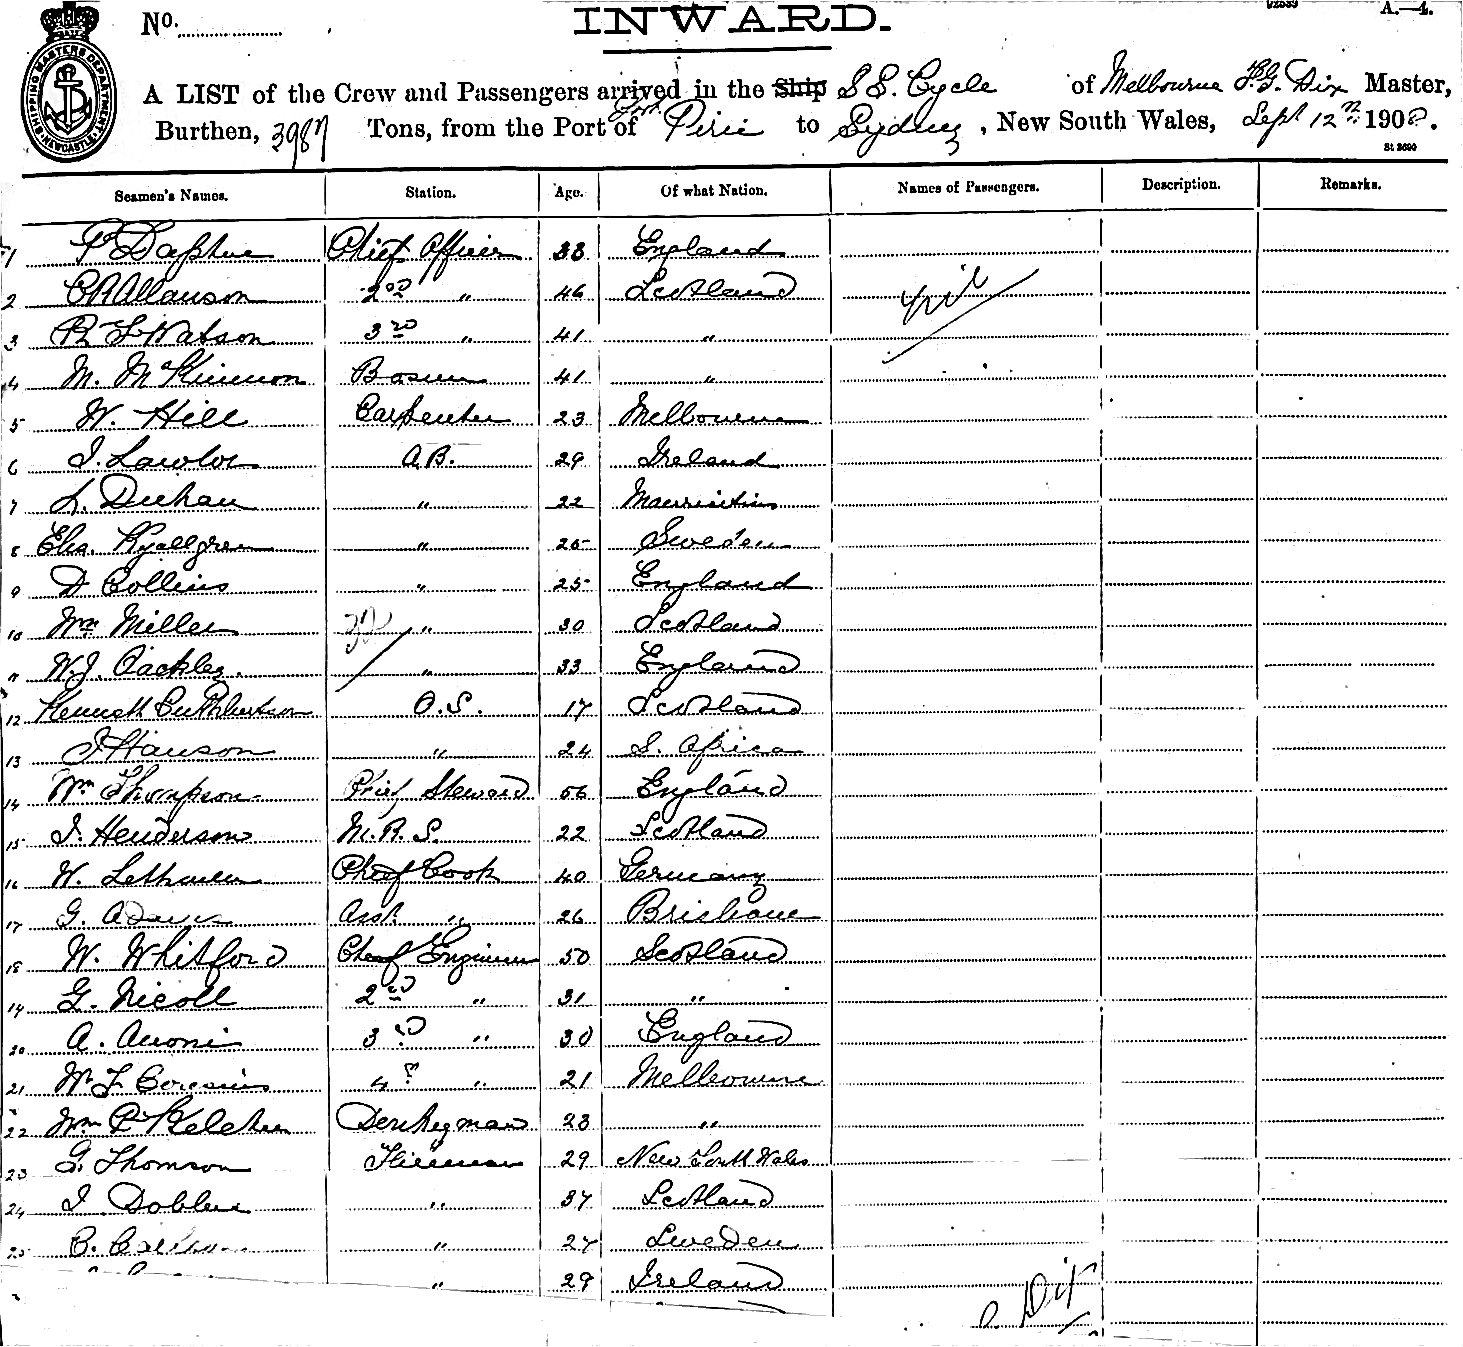 No.
INWARD.
A.—4.
A LIST of the Crew and Passengers arrived in the Ship S.S. Cycle of Melbourne F.G. Dix Master,
Burthen, 3987 Tons, from the Port of Port Pirie to Sydney, New South Wales, Sept 12th 1908.
SHIPPING MASTERS DEPARTMENT NEWCASTLE
Seamen's Names. Station. Age. Of what Nation. Names of Passengers. Description. Remarks.
1 Chief Officer 33 England
2 C R Allanson 2nd " 46 Scotland nil
3 R L Watson 3rd " 41 "
4 M. McKinnon Bosun 41 "
5 W. Hill Carpenter 23 Melbourne
6 J. Lawlor A.B. 29 Ireland
7 " 22 Mauritius
8 Chs. Kjallgren " 25 Sweden
9 D Collins " 25 England
10 Wm Miller " 30 Scotland
32
11 W.J. " 33 England
12 Kenneth Cuthbertson O.S. 17 Scotland
13 J Hanson " 24 S. Africa
14 Wm Thompson Chief Steward 56 England
15 J. Henderson M.R.S. 22 Scotland
16 W. Chief Cook 40 Germany
17 G. Asst. " 26 Brisbane
18 W. Whitford Chief Engineer 50 Scotland
19 G. Nicoll 2nd " 31 "
20 A. 3rd " 30 England
21 W. F. Cousins 4th " 21 Melbourne
22 Wm P Kelcher Donkeyman 23 "
23 G. Thomson Fireman 29 New South Wales
24 J " 37 Scotland
25 C. " 27 Sweden
" 29 Ireland
Dix